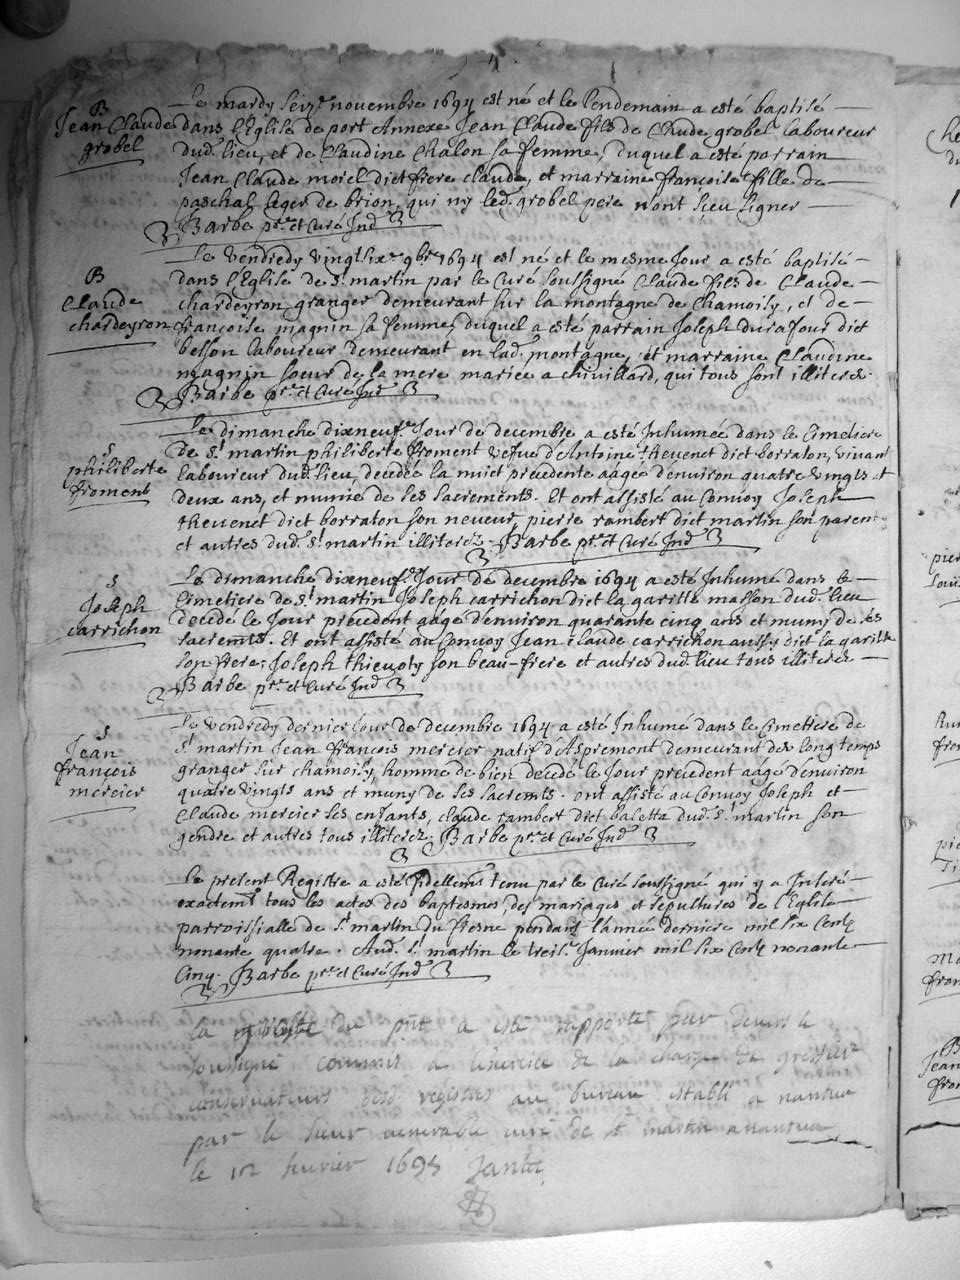 B
Jean Claude
grobel
Le mardy seize novembre 1694 est né et le lendemain a esté baptisé
dans l'Eglise de port Annexe Jean Claude fils de Claude grobel laboureur
dud. lieu, et de Claudine Chalon sa femme, duquel a esté parrain
Jean Claude morel dict frere claude, et marraine françoise fille de
paschal leger de brion, qui ny led. grobel pere n'ont sceu signer
Barbe ptre et Curé Ind
B
Claude
chardeyron
Le vendredy vingt six 9bre 1694 est né et le mesme Jour a esté baptisé
dans l'Eglise de St martin par le Curé soussigné Claude fils de Claude
chardeyron granger demeurant sur la montagne de Chamoisy, et de
françoise magnin sa femme, duquel a esté parrain Joseph durafour dict
besson laboureur demeurant en lad. montagne, et marraine Claudine
magnin soeur de la mere mariée a chivillard, qui tous sont illiterez.
Barbe ptre et Curé Ind
S
philiberte
froment
Le dimanche dixneufe Jour de decembre a esté Inhumée dans le Cimetiere
de St martin philiberte froment vefve d'Antoine thevenet dict borraton, vivant
laboureur dud. lieu, decedée la nuict precedente aagée d'environ quatre vingts et
deux ans, et munie de ses sacrements. Et ont assisté au Convoy Joseph
thevenet dict borraton son neveur, pierre rambert dict martin son parent
et autres dud. St martin illiterez. Barbe ptre et Curé Ind
S
Joseph
carrichon
Le dimanche dixneufe Jour de decembre 1694 a esté Inhumé dans le
Cimetiere de St martin Joseph carrichon dict la garitte masson dud. lieu
decedé le Jour precedent aagé d'environ quarante cinq ans et muny de ses
sacremts. Et ont assisté au Convoy Jean claude carrichon aussy dict la garitte
son frere, Joseph thievoty son beau-frere et autres dud. lieu tous illiterez
Barbe ptre et Curé Ind
S
Jean
françois
mercier
Le vendredy dernier Jour de decembre 1694 a esté Inhumé dans le Cimettere de
St martin Jean françois mercier natif d'Aspremont demeurant des long temps
granger sur chamoisy, homme de bien decedé le Jour precedent aagé d'environ
quatre vingts ans et muny de ses sacremts. ont assisté au Convoy Joseph et
Claude mercier ses enfants, claude rambert dict baletta dud. St martin son
gendre et autres tous illiterez. Barbe ptre et Curé Ind
Le present Registre a esté fidellemt tenu par le Curé soussigné qui y a Inseré
exactemt tous les actes des baptesmes, des mariages et sepultures de l'Eglise
parroissialle de St martin du fresne pendant l'année derniere mil six Cents
nonante quatre. Aud. St martin le treise Janvier mil six Cents nonante
Cinq. Barbe ptre et Curé Ind
la du pnt a esté rapporté par devers le
soussigné commis a l'exercice de la charge de greffier
conservateurs desd registres au bureau establi a nantua
par le sieur venerable curé de St martin a nantua
le 12 fevrier 1695